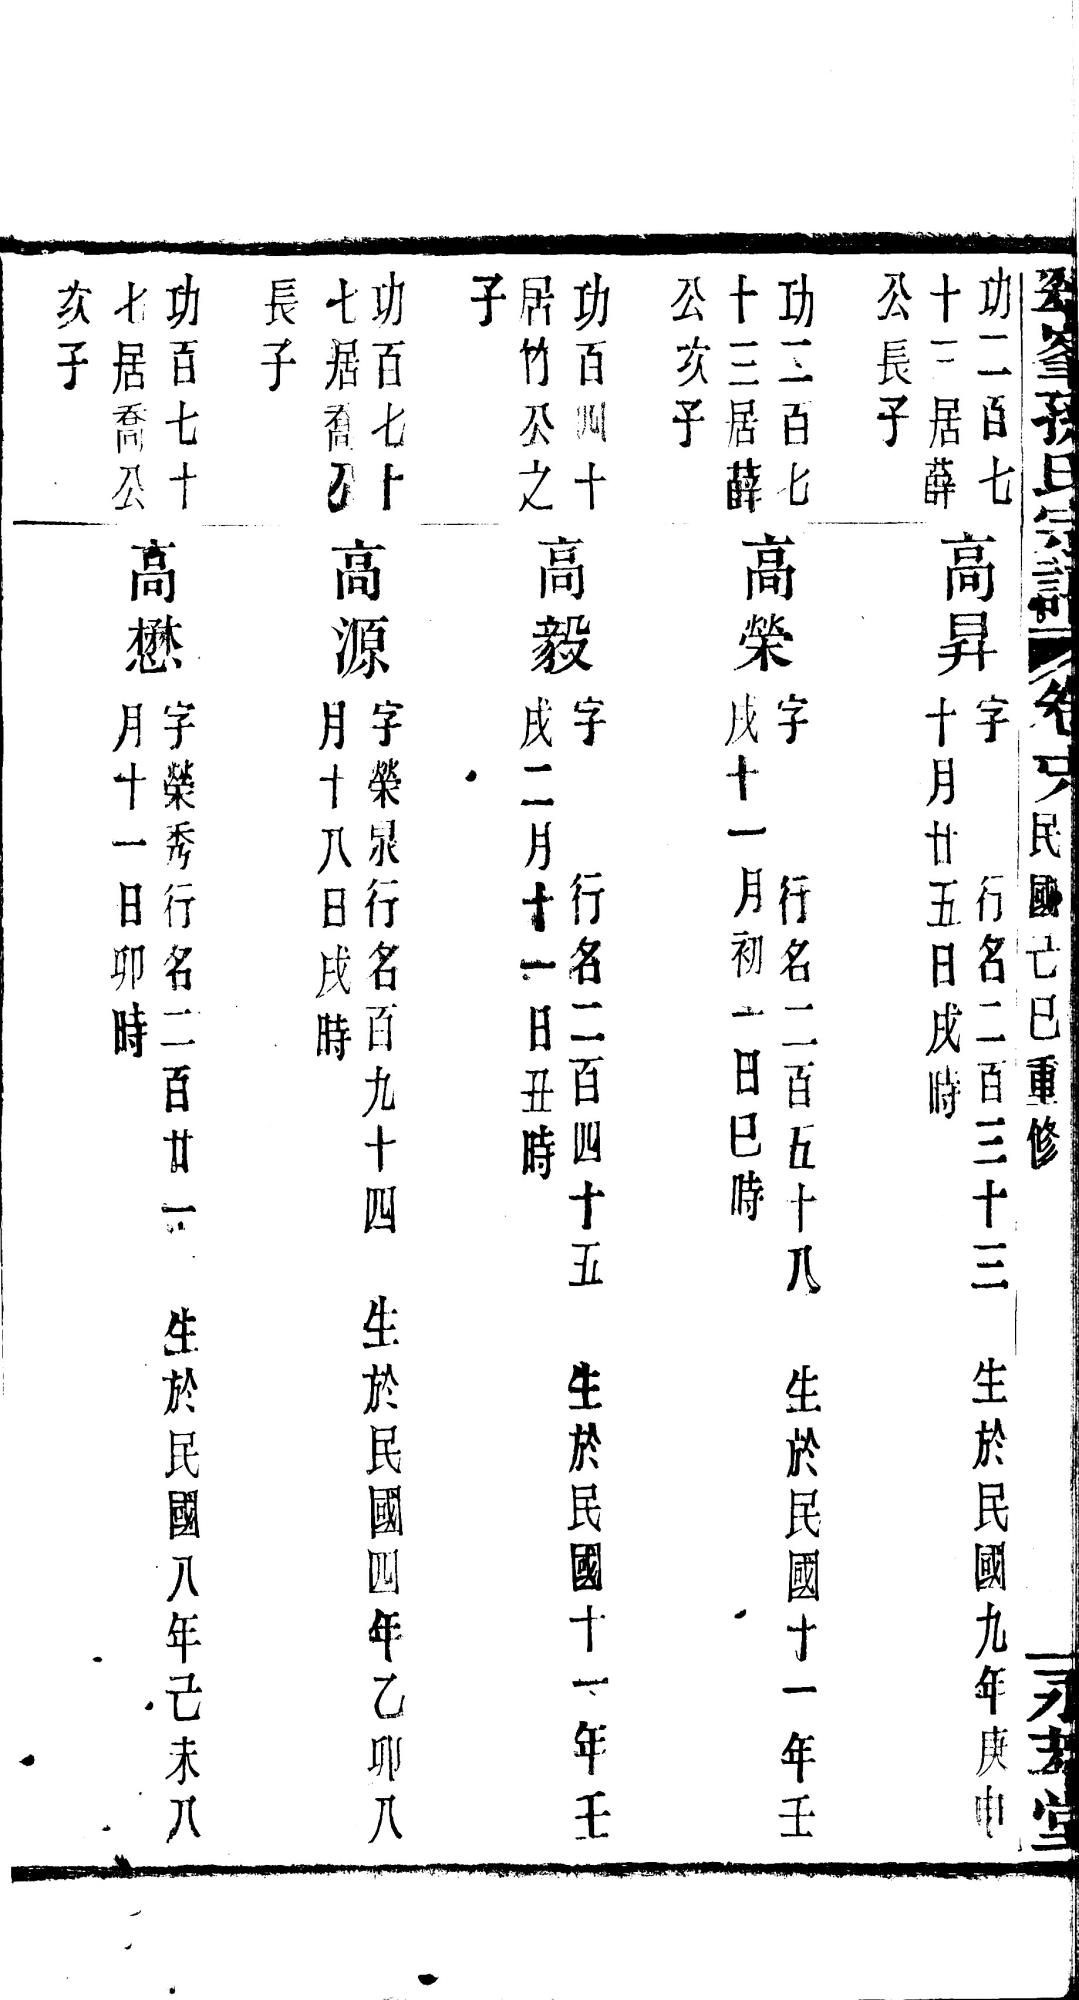 孫氏宗譜
民國己巳重修
堂
功二百七
十三居薛
公長子
高昇
字 行名二百三十三 生於民國九年庚申
十月廿五日戌時
功二百七
十三居薛
公次子
高榮
字 行名二百五十八 生於民國十一年壬
戌十一月初一日巳時
功百四十
居竹公之
子
高毅
字 行名二百四十五 生於民國十一年壬
戌二月十一日丑時
功百七十
七居喬公
長子
高源
字榮泉行名百九十四 生於民國四年乙卯八
月十八日戌時
功百七十
七居喬公
次子
高懋
字榮秀行名二百廿一 生於民國八年己未八
月十一日卯時